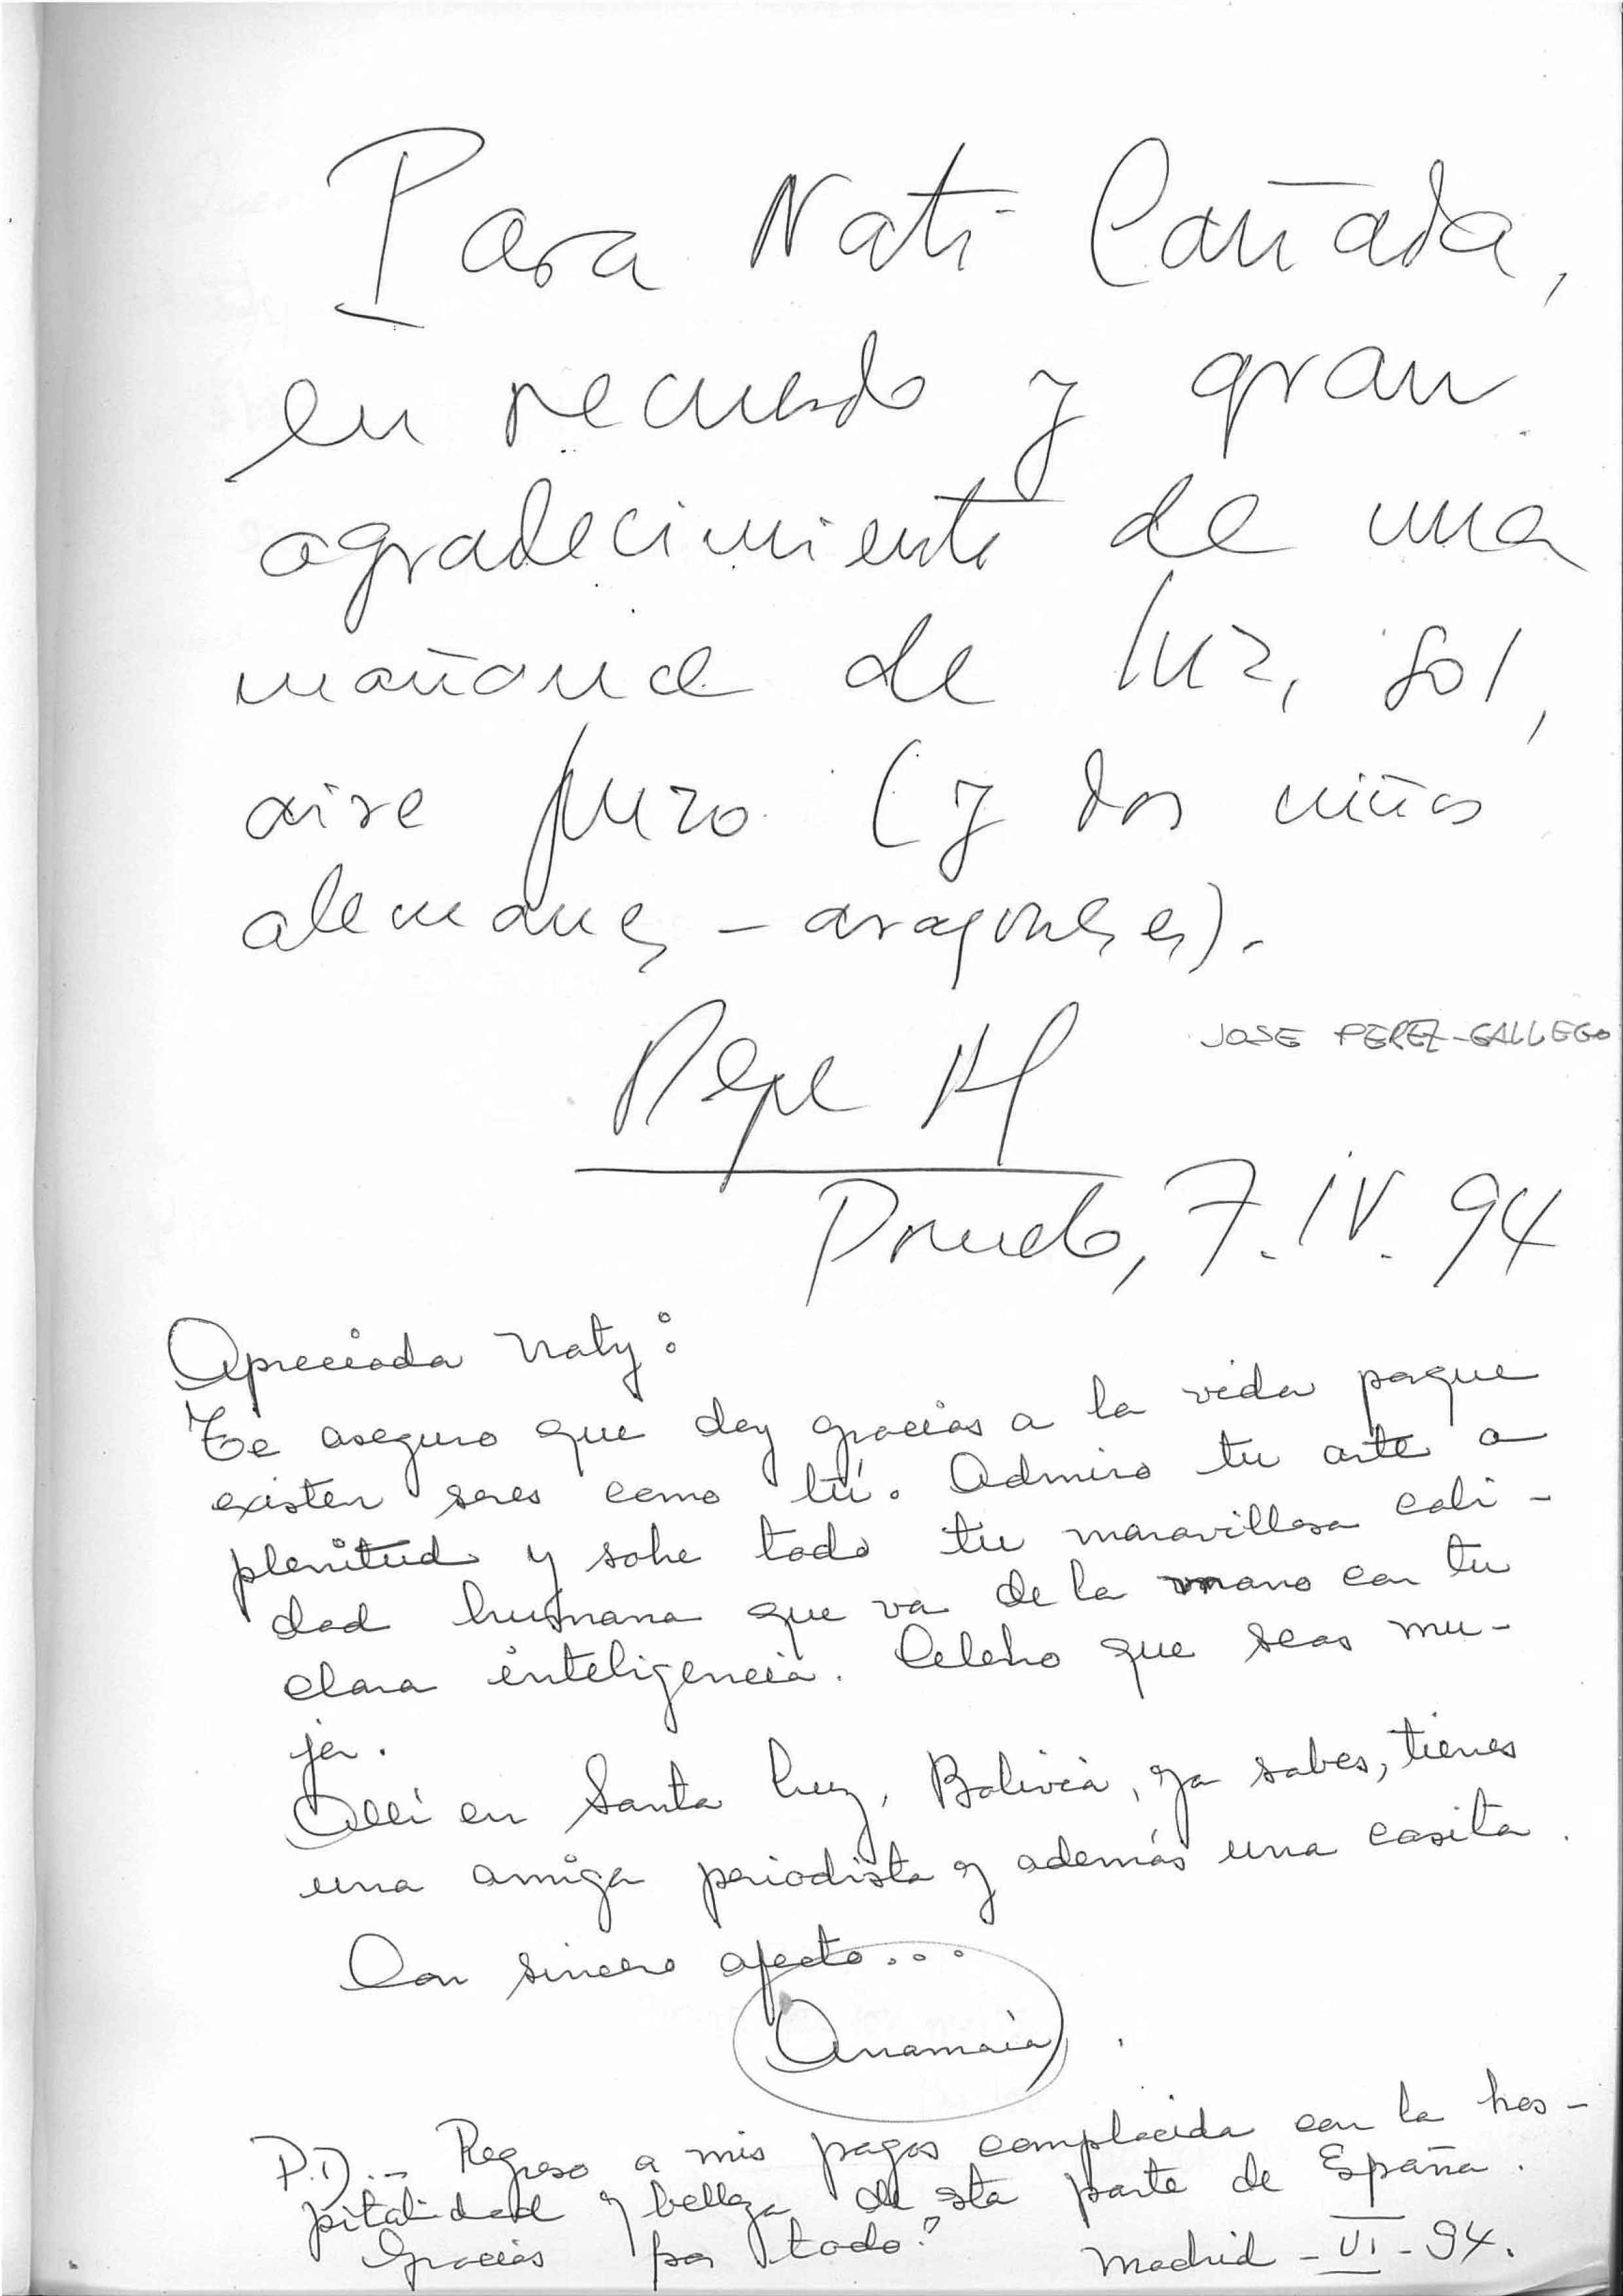 Para Nati Cañada,
en recuerdo y gran
agradecimiento de una
mañana de luz, sol,
aire puro (y dos niños
alemanes - aragoneses).
Pepe
JOSE PEREZ-GALLEGO
7. IV. 94
Apreciada Naty:
Te aseguro que doy gracias a la vida porque
existen seres como tú. Admiro tu arte a
plenitud y sobre todo tu maravillosa cali-
dad humana que va de la mano con tu
clara inteligencia. Celebro que seas mu-
jer.
Allí en Santa Cruz, Bolivia, ya sabes, tienes
una amiga periodista y además una casita.
Con sincero afecto...
Anamaría
P.D.- Regreso a mis pagos complacida con la hos-
pitalidad y belleza de esta parte de España.
Gracias por todo!
Madrid - VI - 94.